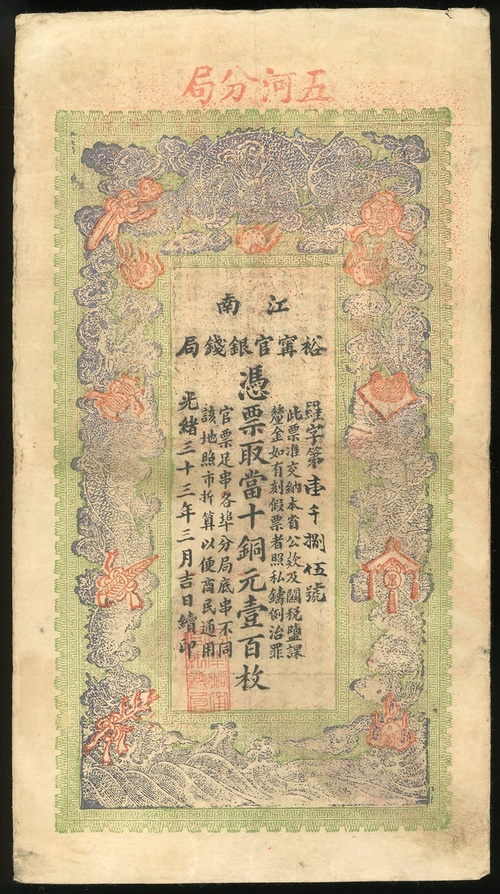 五河分局
江南
裕甯官銀錢局
羅字第壹千捌伍號
此票准交納本省公欵及關税鹽課
釐金如有刻假票者照私鑄例治罪
憑票取當十銅元壹百枚
官票足串各埠分局底串不同
該地照市折算以便商民通用
光緒三十三年三月吉日續印